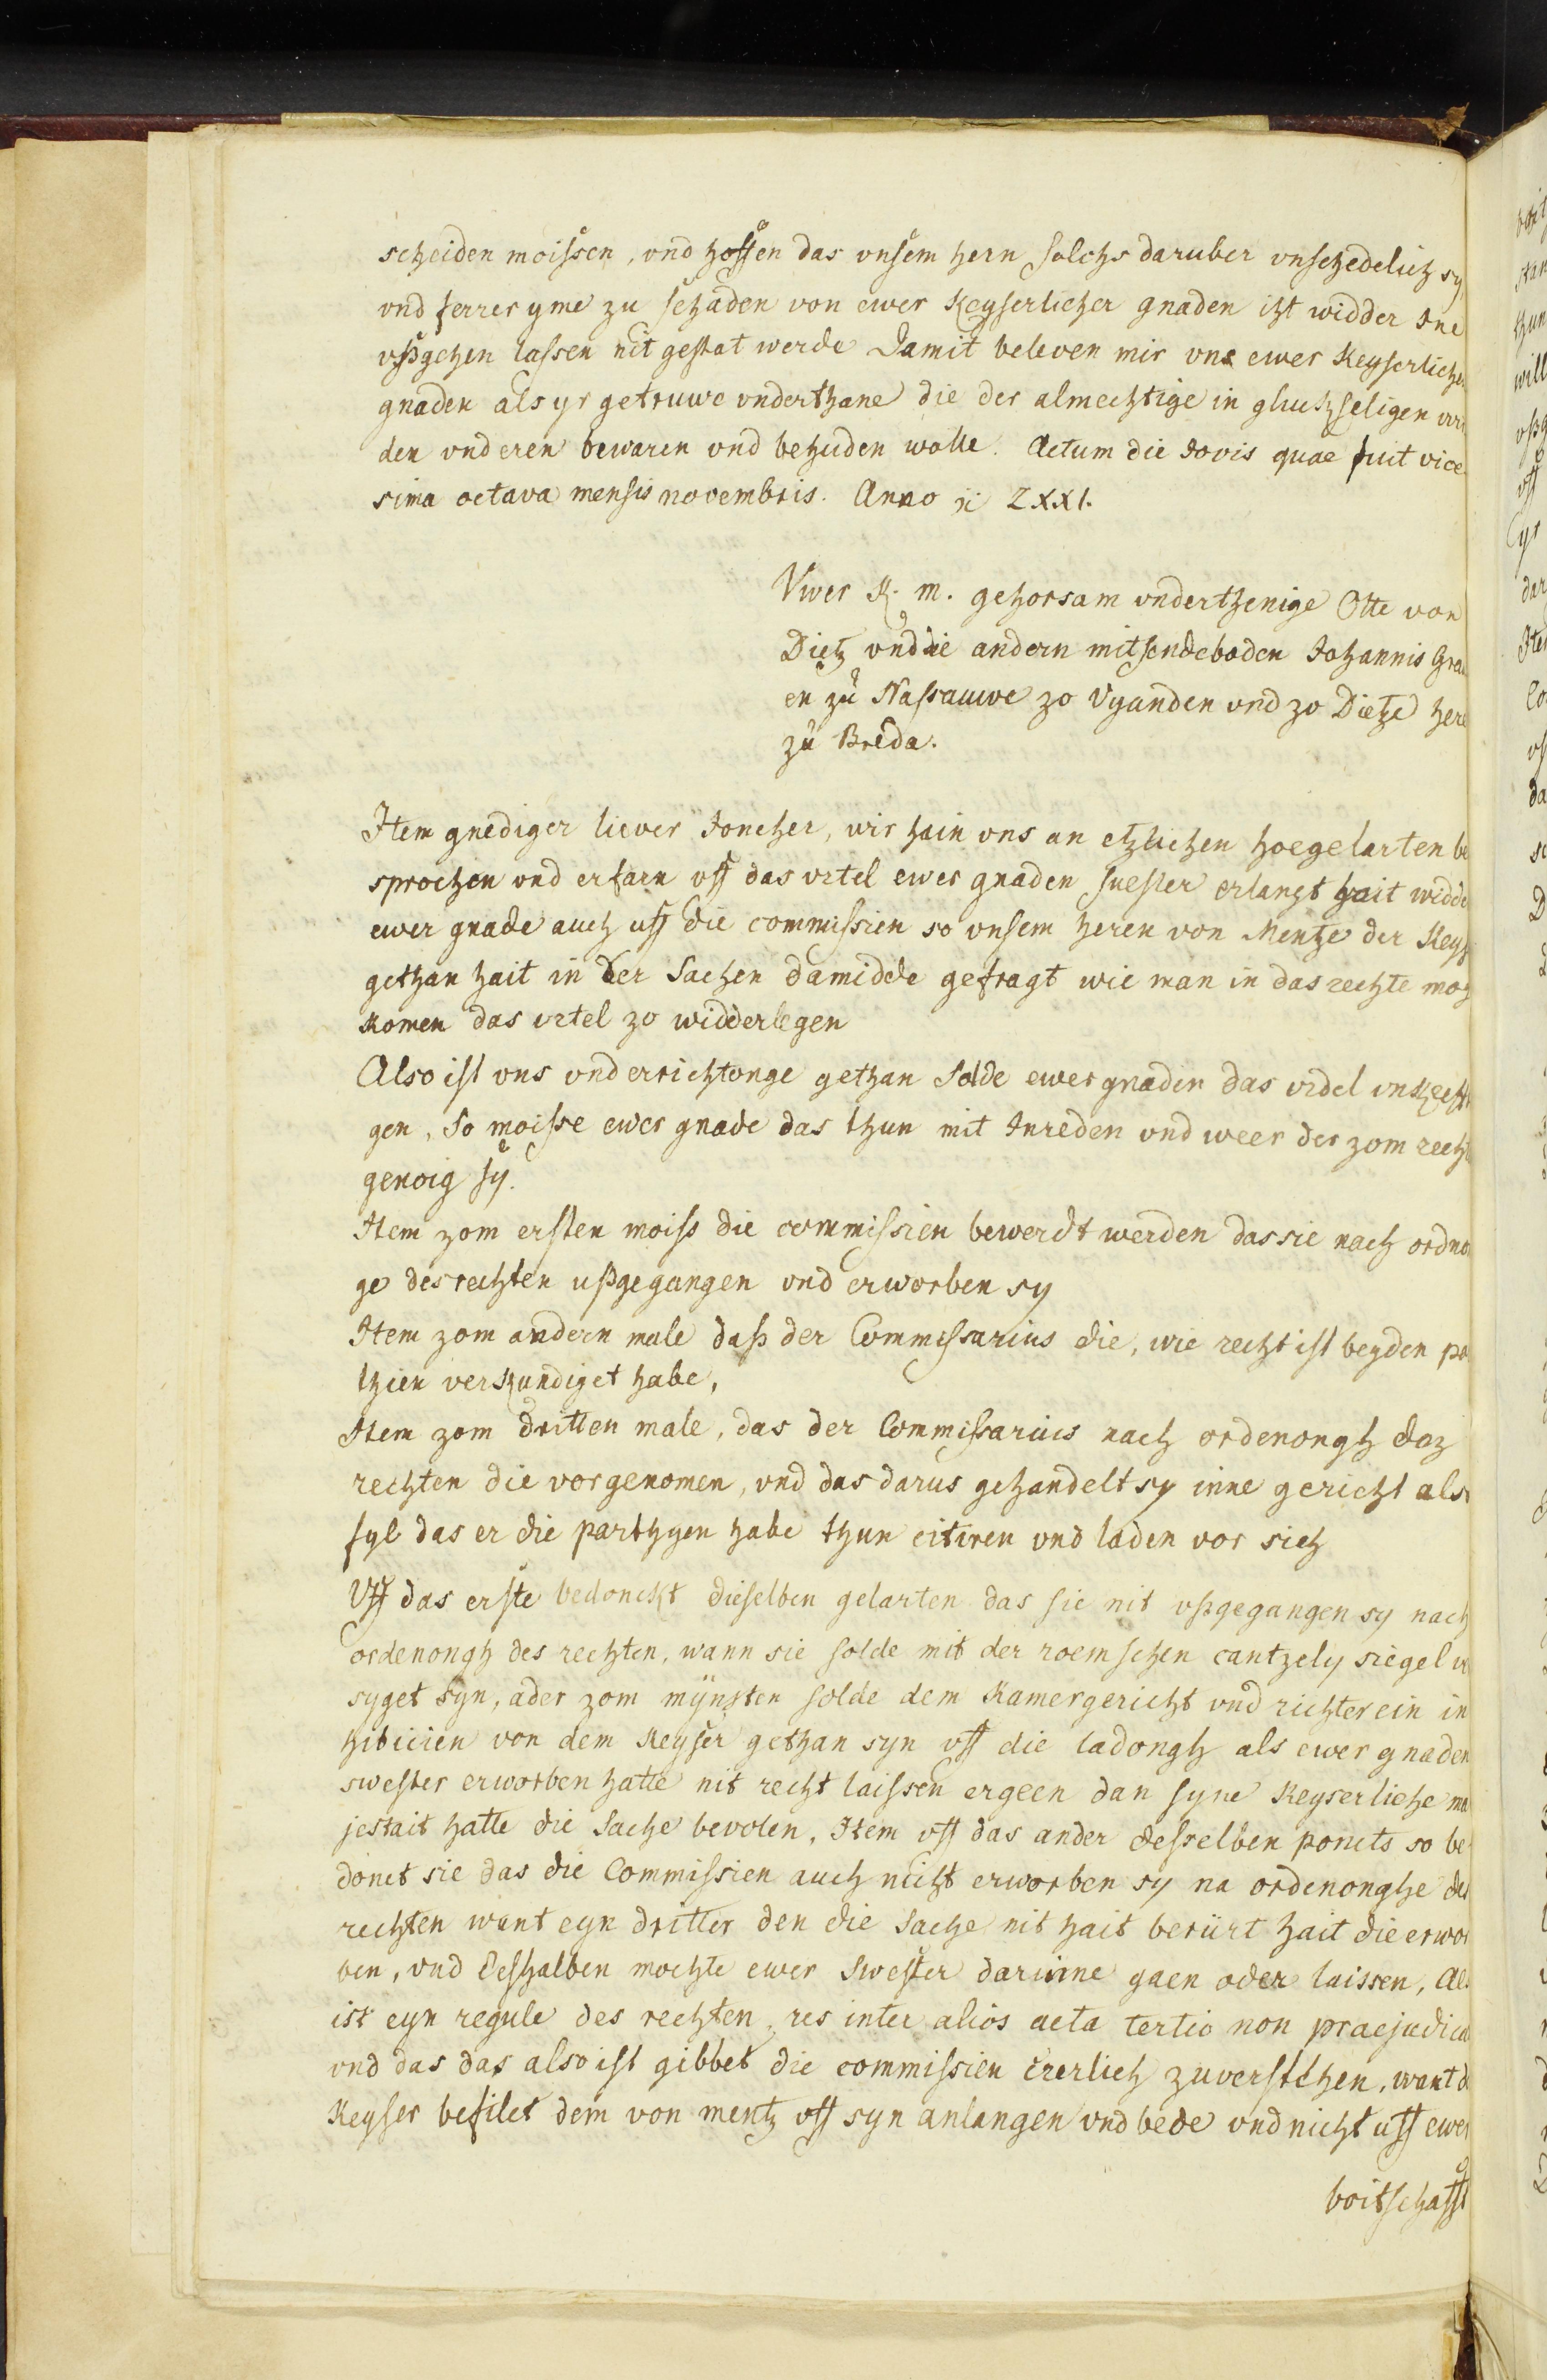 scheiden moissen, vnd hoffen das vnsem hern solchs daruber vnschedelich sy
vnd ferrer yme zu schaden von ewer Keyserlicher gnaden itzt widder Ine
vßgehen lassen nit gestat werde Damit beleven mir vns ewer Keyserlicher
gnaden als yr getruwe vnderthane die der almechtige in gluckseligen
den vnd eren bewaren vnd behuden wolle. Actum die Jovis quae fuit vice
sima octava mensis novembris. Anno LXXI.
Vwer K. m. gehorsam vnderthenige Otte von
Dietz vnd die andern mitsendeboden Johannis Gra
en zu Nassauwe zo Vyanden vnd zo Dietze here
zu Breda.
Item gnediger liever Joncher, wir hain vns an etzlichen hoegelarten be
sprochen vnd erfarn vff das vrtel ewer gnaden suester erlangt hait widde
ewer gnade auch uff die commissien so vnsem heren von Mentze der Keys
gethan hait in der Sachen damidde gefragt wie man in das rechte mog
komen das vrtel zo widderlegen
Also ist vns vnderrichtonge gethan Solde ewer gnaden das vrdel vnkrefft
gen, So moisse ewer gnade das thun mit Inreden vnd weer der zom recht
genoig sy.
Item zom ersten moiss die commissien bewerdt werden das sie nach ordno
ge des rechten ußgegangen vnd erworben sy
Item zom andern male daß der Commissarius die, wie recht ist beyden pa
thien verkundiget habe,
Item zom dritten male, das der Commissarius nach ordenongh daz
rechten die vorgenomen, vnd das darus gehandelt sy inne gericht als
fyl das er die parthyen habe thun citiren vnd laden vor sich
Vff das erste bedonckt dieselben gelarten das sie nit vßgegangen sy nach
ordenongh des rechten, wann sie solde mit der roemschen cantzely siegel v
syget syn, ader zom mynsten solde dem Kamergericht vnd richter ein in
hibicien von dem Keyser gethan syn vff die ladongh als ewer gnaden
swester erworben hatte nit recht laissen ergeen dan syne Keyserliche ma
jestait hatte die Sache bevolen, Item vff das ander desselben poncts so be
donct sie das die Commissien auch nicht erworben sy na ordenonghe des
rechten want eyn dritter den die Sache nit hait berürt hait die erwor
ben, vnd deshalben mochte ewer Swester darinne gaen oder laissen, Als
ist eyn regule des rechten, res inter alios acta tertio non praejudica
vnd das das also ist gibbet die commissien clerlich zu verstehen, want d
Keyser befilet dem von mentz vff syn anlangen vnd bede vnd nicht uff ewer
boitschafft